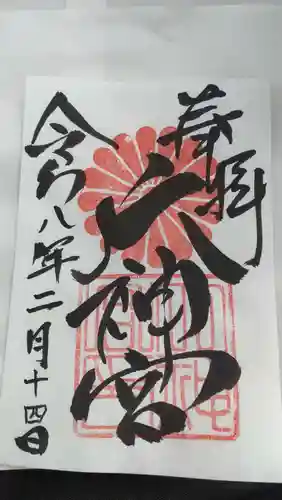 奉拝
神宮
令和八年二月十四日